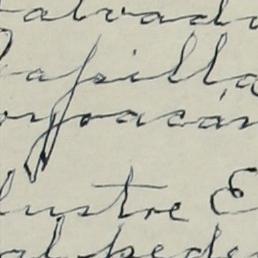 alvado
apilla
oyoacán
lustre E
al pede